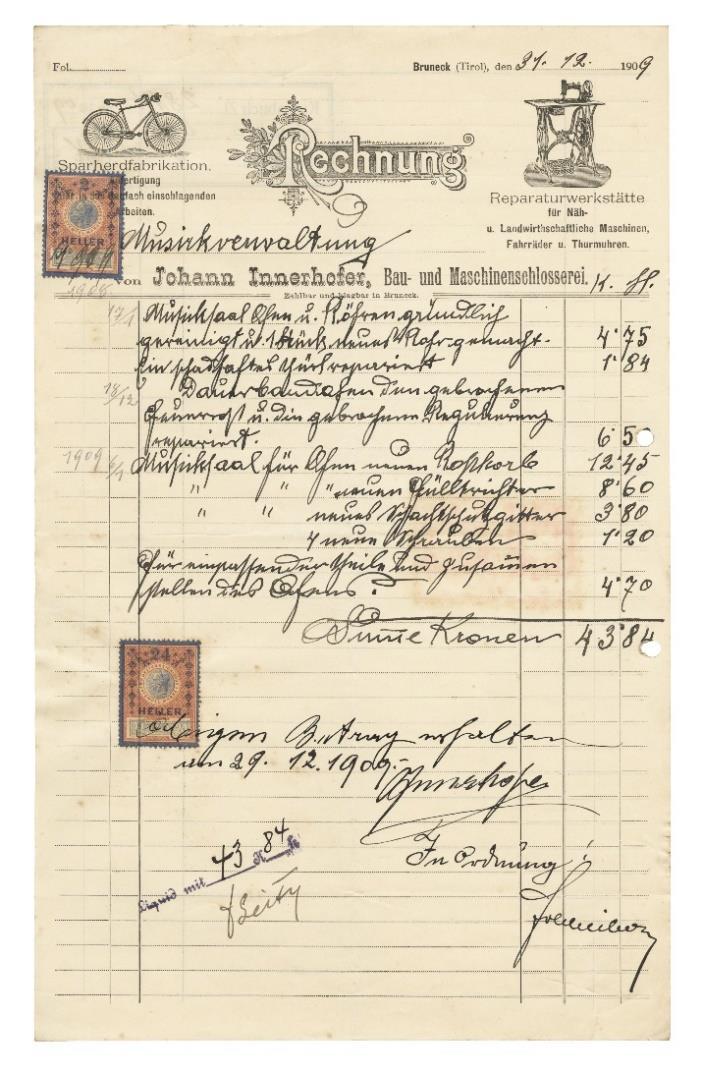 Fol.
Bruneck (Tirol), den 31. 12. 1909
Rechnung
Sparherdfabrikation.
einschlagenden
Arbeiten.
Reparaturwerkstätte
für Näh-
u. Landwirthschaftliche Maschinen,
Fahrräder u. Thurmuhren.
2
HELLER
Musikverwaltung
von Johann Innerhofer, Bau- und Maschinenschlosserei.
K. H.
Zahlbar und klagbar in Bruneck.
1908
17/1 Musiksaal Ofen u. Röhren gründlich
gereinigt u. 1 Stück neues Rohr gemacht. 4·75
Ein schadhaftes repariert 1·84
18/12 Dauerbrandofen den gebrochenen
Feuerrost u. die gebrochene Regulierung
repariert. 6·50
1909 Musiksaal für Ofen neuen Rostkorb 12·45
" " " neuen Fülltrichter 8·60
" " neues Schachtschutzgitter 3·80
4 neue Schrauben 1·20
Für einpassen der Theile und zusam̅en
stellen des Ofens 4·70
Sum̅e Kronen 43·84
24
HELLER
Obigen Betrag erhalten
am 29. 12. 1909.
Innerhofer
In Ordnung!
Liquid mit 43 K 84 h